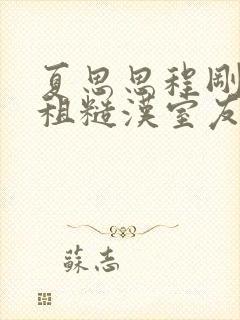 夏思思程剛
租糙漢室友
蘇志